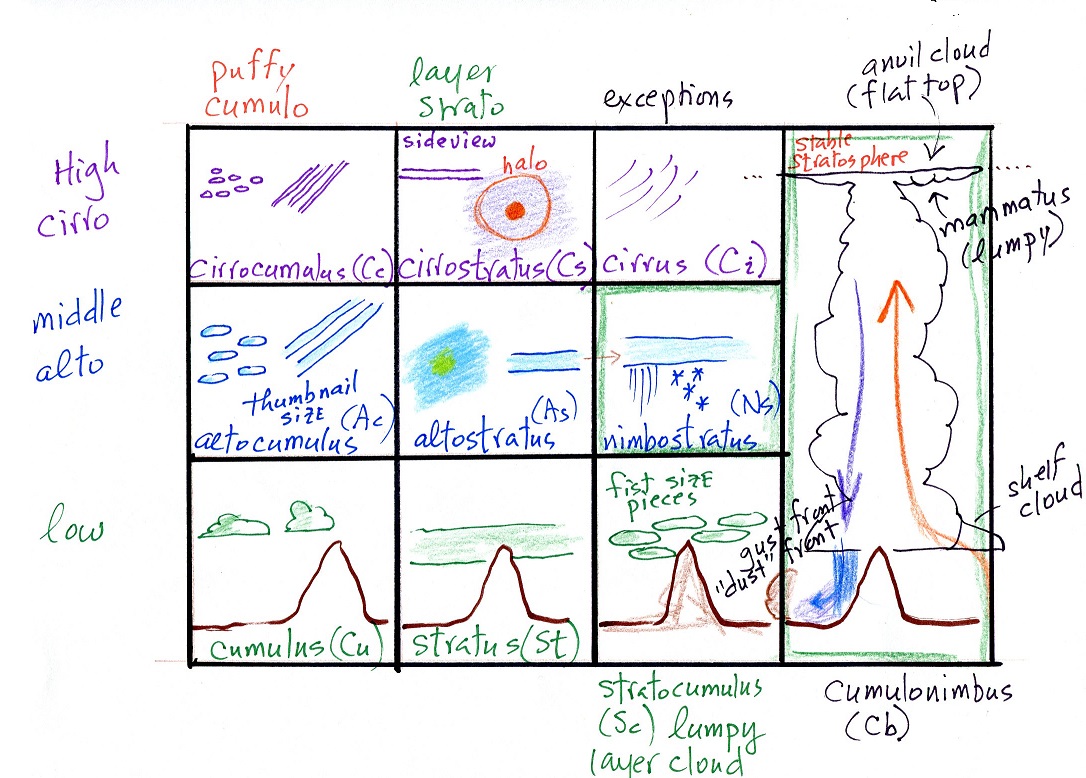 puffy
cumulo
layer
strato
exceptions
anvil cloud
(flat top)
High
cirro
sideview
halo
stable
stratosphere
mammatus
(lumpy)
cirrocumulus (Cc)
cirrostratus (Cs)
cirrus (Ci)
middle
alto
thumbnail
SIZE
(Ac)
altocumulus
(As)
altostratus
(Ns)
nimbostratus
low
fist SIZE
pieces
gust front
"dust" front
shelf
cloud
cumulus (Cu)
stratus (St)
stratocumulus
(Sc) lumpy
layer cloud
Cumulonimbus
(Cb)